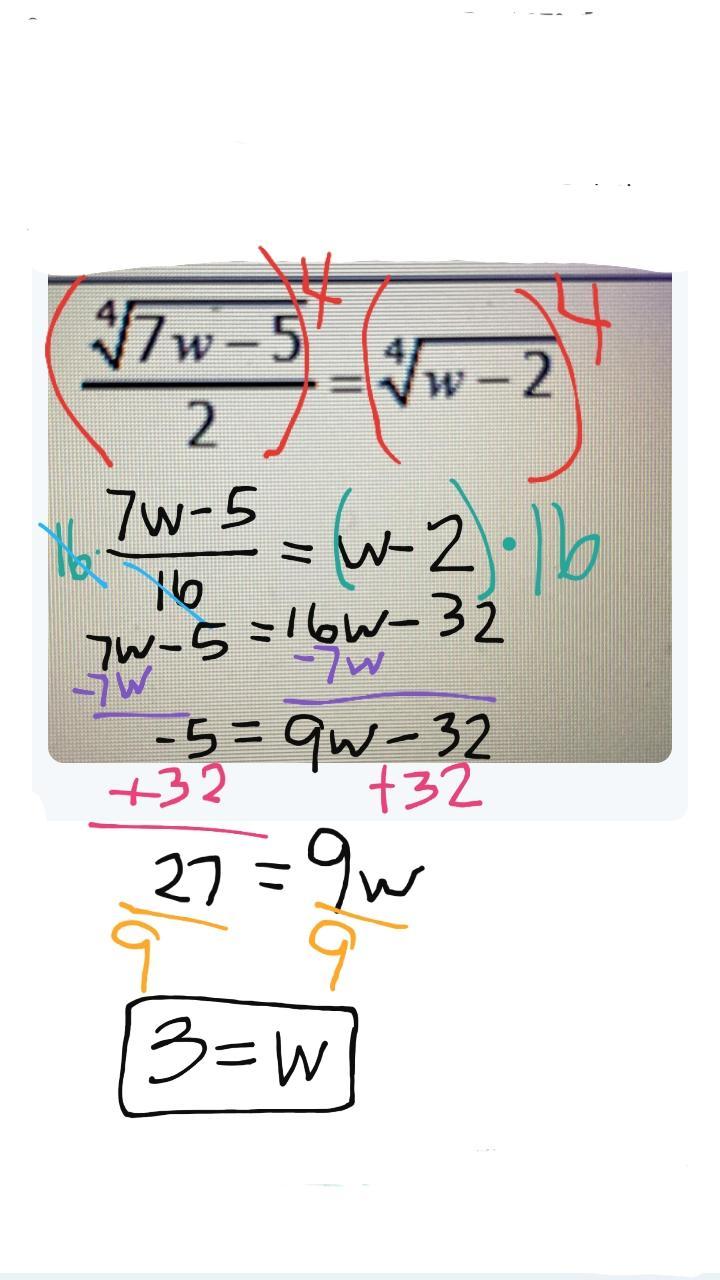 (⁴√(7w−5) / 2)⁴ = (⁴√(w−2))⁴
16 · (7w−5)/16 = (w−2) · 16
7w−5 = 16w−32
−7w −7w
−5 = 9w−32
+32 +32
27 = 9w
9 9
3=w